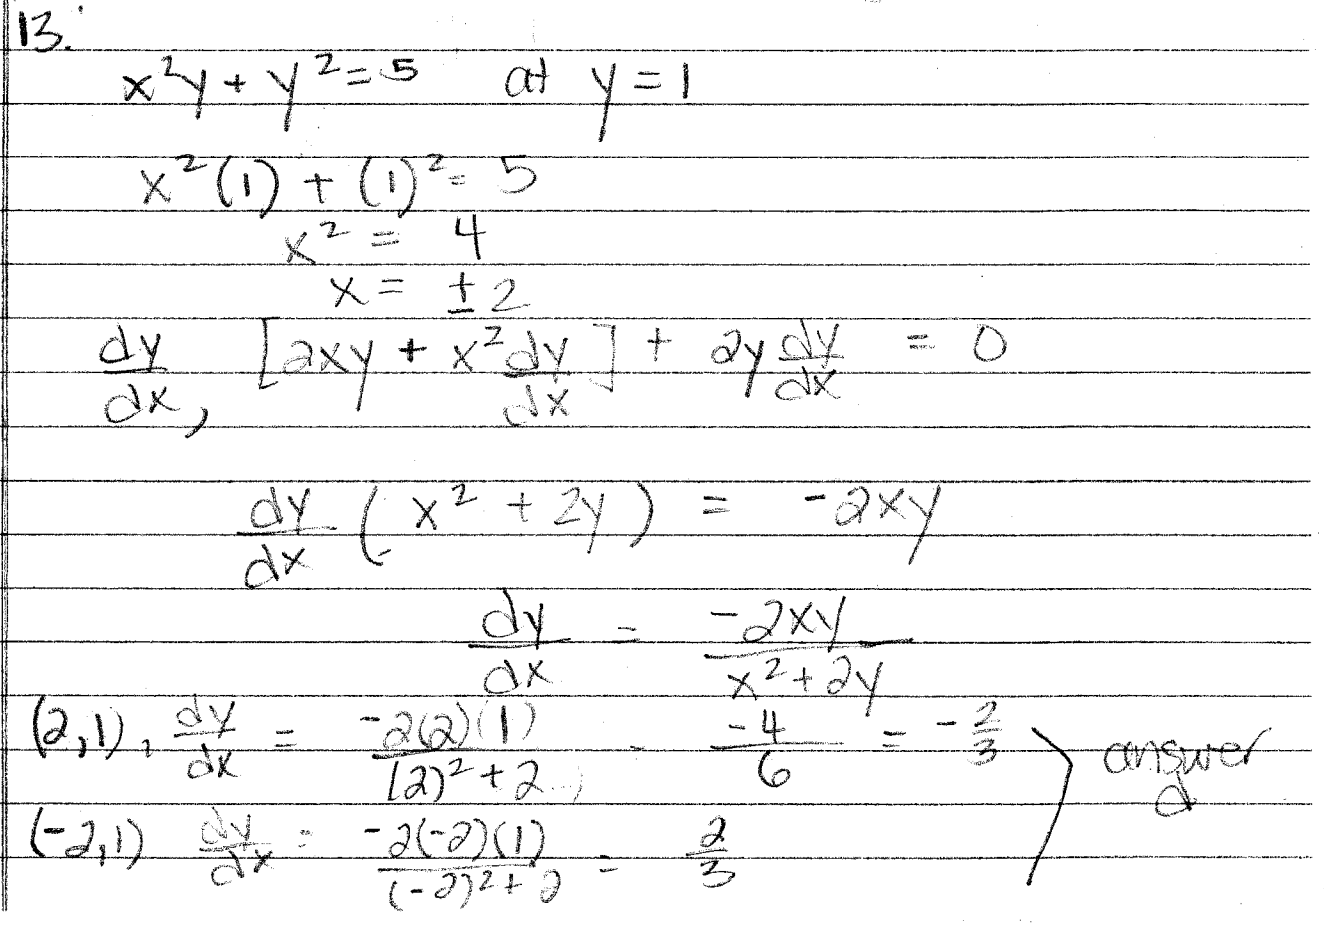 13.
x²y + y² = 5 at y = 1
x²(1) + (1)² = 5
x² = 4
x = ±2
dy/dx, [2xy + x² dy/dx] + 2y dy/dx = 0
dy/dx (x² + 2y) = -2xy
dy/dx = -2xy/(x² + 2y)
(2,1), dy/dx = -2(2)(1)/((2)² + 2) = -4/6 = -2/3
answer d
(-2,1) dy/dx = -2(-2)(1)/((-2)² + 2) = 2/3